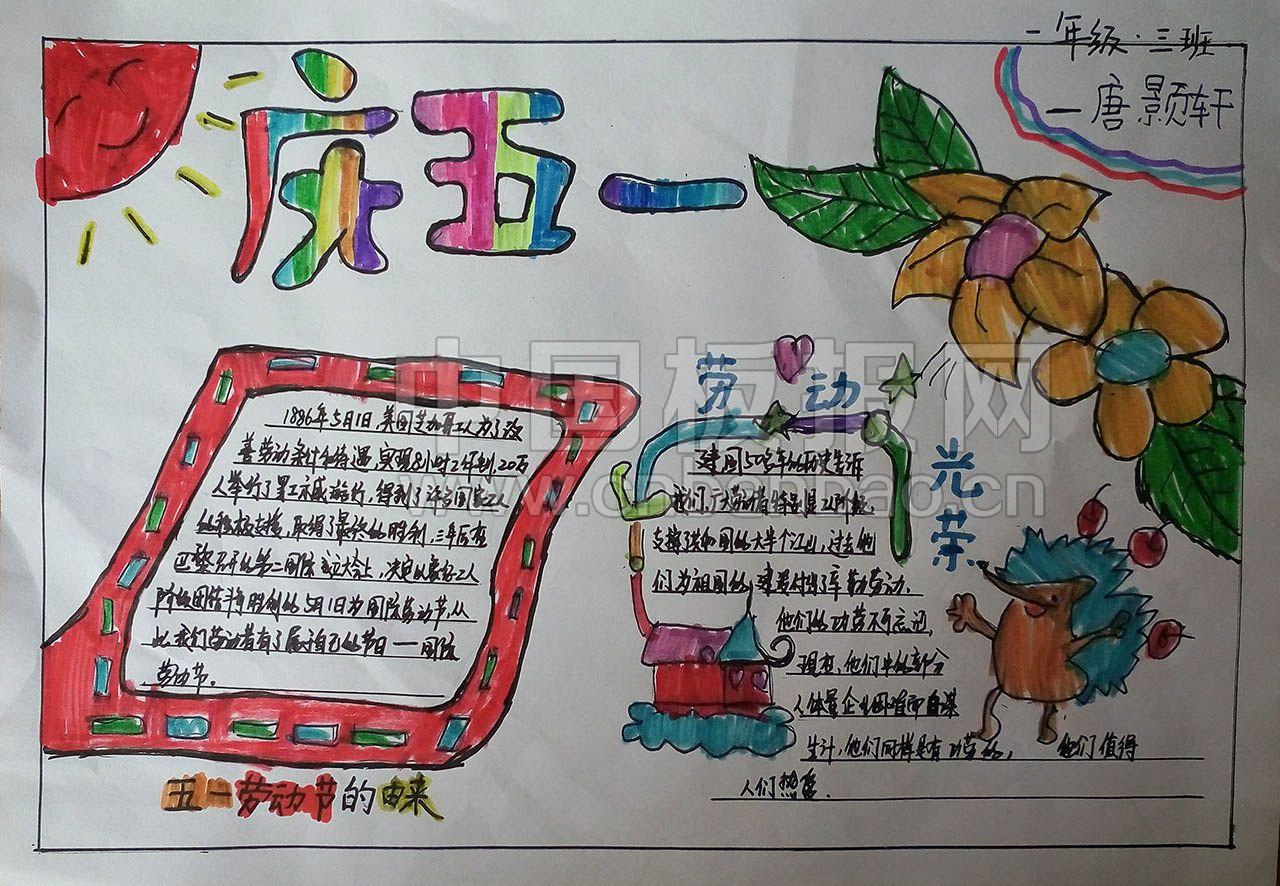 一年级·三班
唐颢轩
庆五一
1886年5月1日,美国芝加哥工人为了改
善劳动条件和待遇,实现8小时工作制,20万
人举行了罢工示威游行,得到了许多国家工人
的积极支援,取得了最终的胜利,三年后在
巴黎召开的第二国际成立大会上,决定以象征工人
阶级团结斗争胜利的5月1日为国际劳动节,从
此我们劳动者有了属于自己的节日——国际
劳动节。
五一劳动节的由来
劳动
光荣
建国50多年的历史告诉
我们,广大劳动者特别是工人阶级,
支撑了共和国的大半个江山,过去他
们为祖国的建设付出了辛勤劳动,
他们的功劳不可忘记,
现在,他们中的部分
人体谅企业困难而自谋
生计,他们同样是有功劳的, 他们值得
人们热爱.
中国板报网
www.cnbanbao.cn